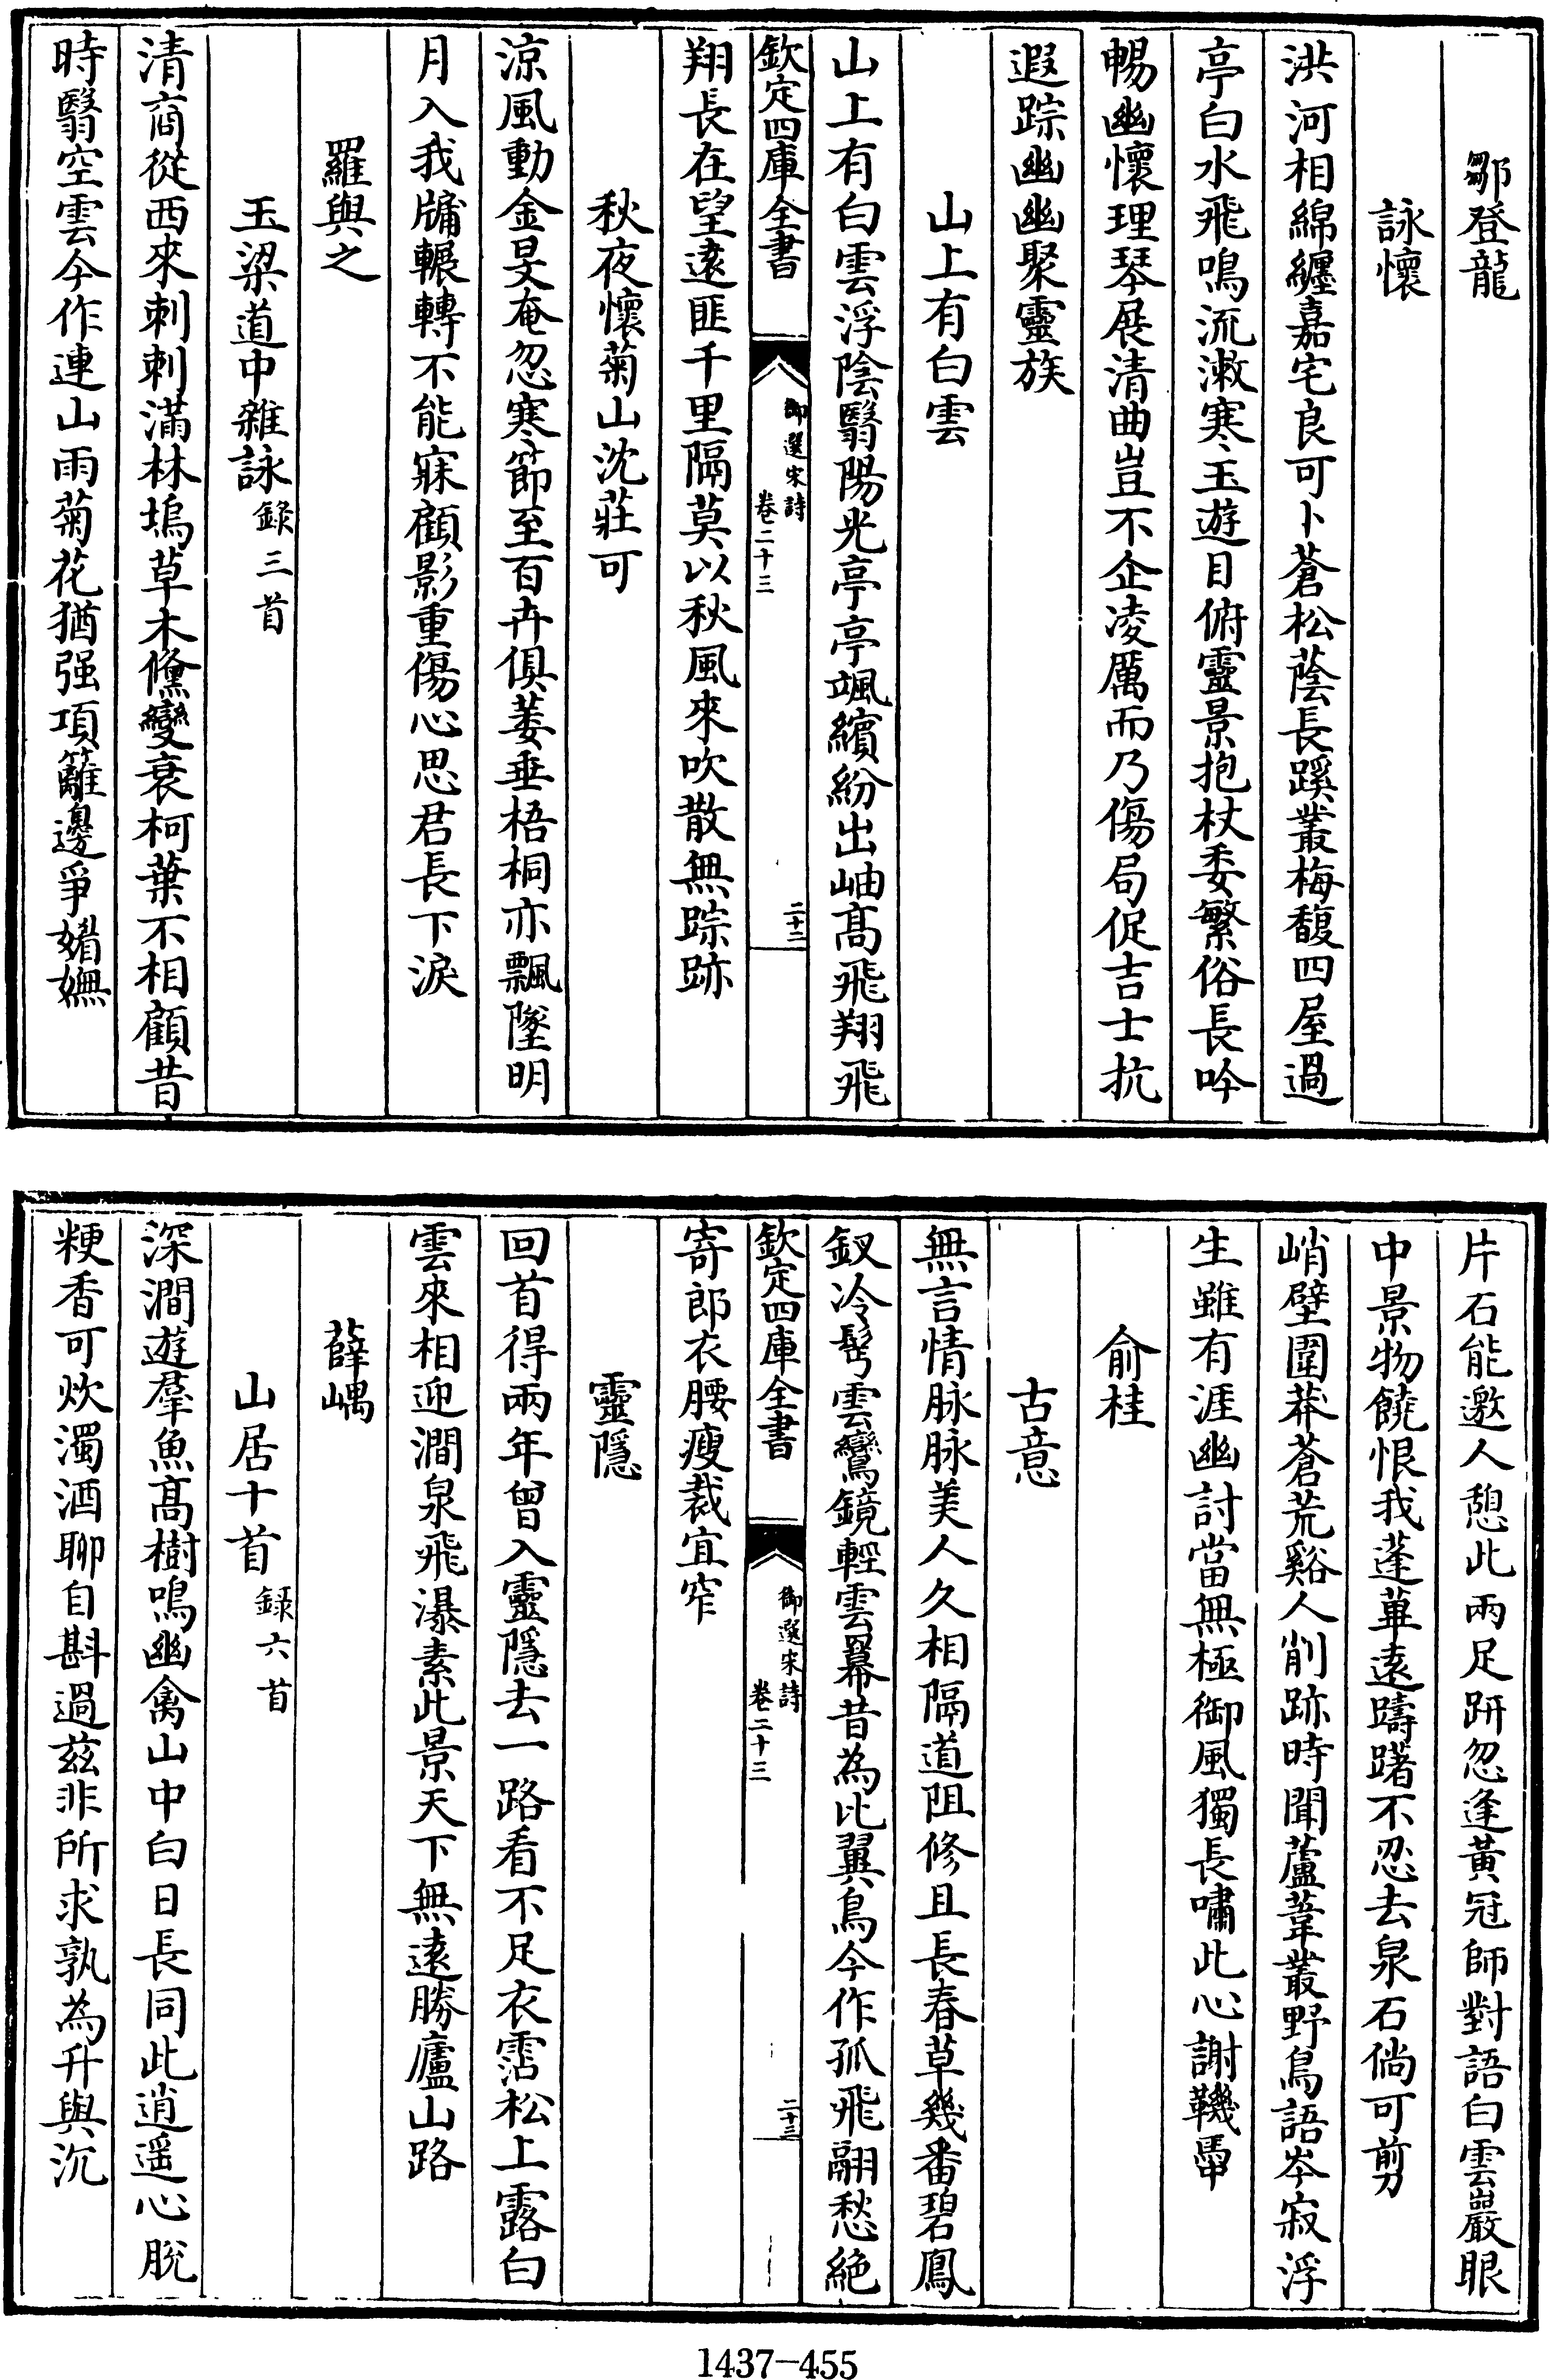 鄒登龍
詠懷
洪河相綿纏嘉宅良可卜蒼松蔭長蹊叢梅馥四屋過
亭白水飛鳴流漱寒玉遊目俯靈景抱杖委繁俗長吟
暢幽懷理琴展清曲豈不企凌厲而乃傷局促吉士抗
遐踪幽幽聚靈族
山上有白雲
山上有白雲浮陰翳陽光亭亭颯繽紛出岫髙飛翔飛
欽定四庫全書
御選宋詩
卷二十三
二十二
翔長在望逺匪千里隔莫以秋風來吹散無踪跡
秋夜懷菊山沈莊可
涼風動金旻奄忽寒節至百卉俱萎垂梧桐亦飄墜明
月入我牖輾轉不能寐顧影重傷心思君長下淚
羅與之
玉梁道中雜詠錄三首
清商從西來刺刺滿林塢草木儵變衰柯葉不相顧昔
時翳空雲今作連山雨菊花猶强項籬邊爭媚嫵
片石能邀人憩此兩足趼忽逢黃冠師對語白雲巖眼
中景物饒恨我蓬蓽逺躊躇不忍去泉石倘可剪
峭壁圍莽蒼荒谿人削跡時聞蘆葦叢野鳥語岑寂浮
生雖有涯幽討當無極御風獨長嘯此心謝鞿馽
俞桂
古意
無言情脉脉美人久相隔道阻修且長春草幾番碧鳳
釵冷髩雲鸞鏡輕雲羃昔為比翼鳥今作孤飛翮愁絶
欽定四庫全書
御選宋詩
卷二十三
二十三
寄郎衣腰瘦裁宜窄
靈隱
回首得兩年曾入靈隱去一路看不足衣霑松上露白
雲來相迎澗泉飛瀑素此景天下無逺勝廬山路
薛嵎
山居十首錄六首
深澗遊羣魚髙樹鳴幽禽山中白日長同此逍遥心脫
粳香可炊濁酒聊自斟過兹非所求孰為升與沉
1437-455